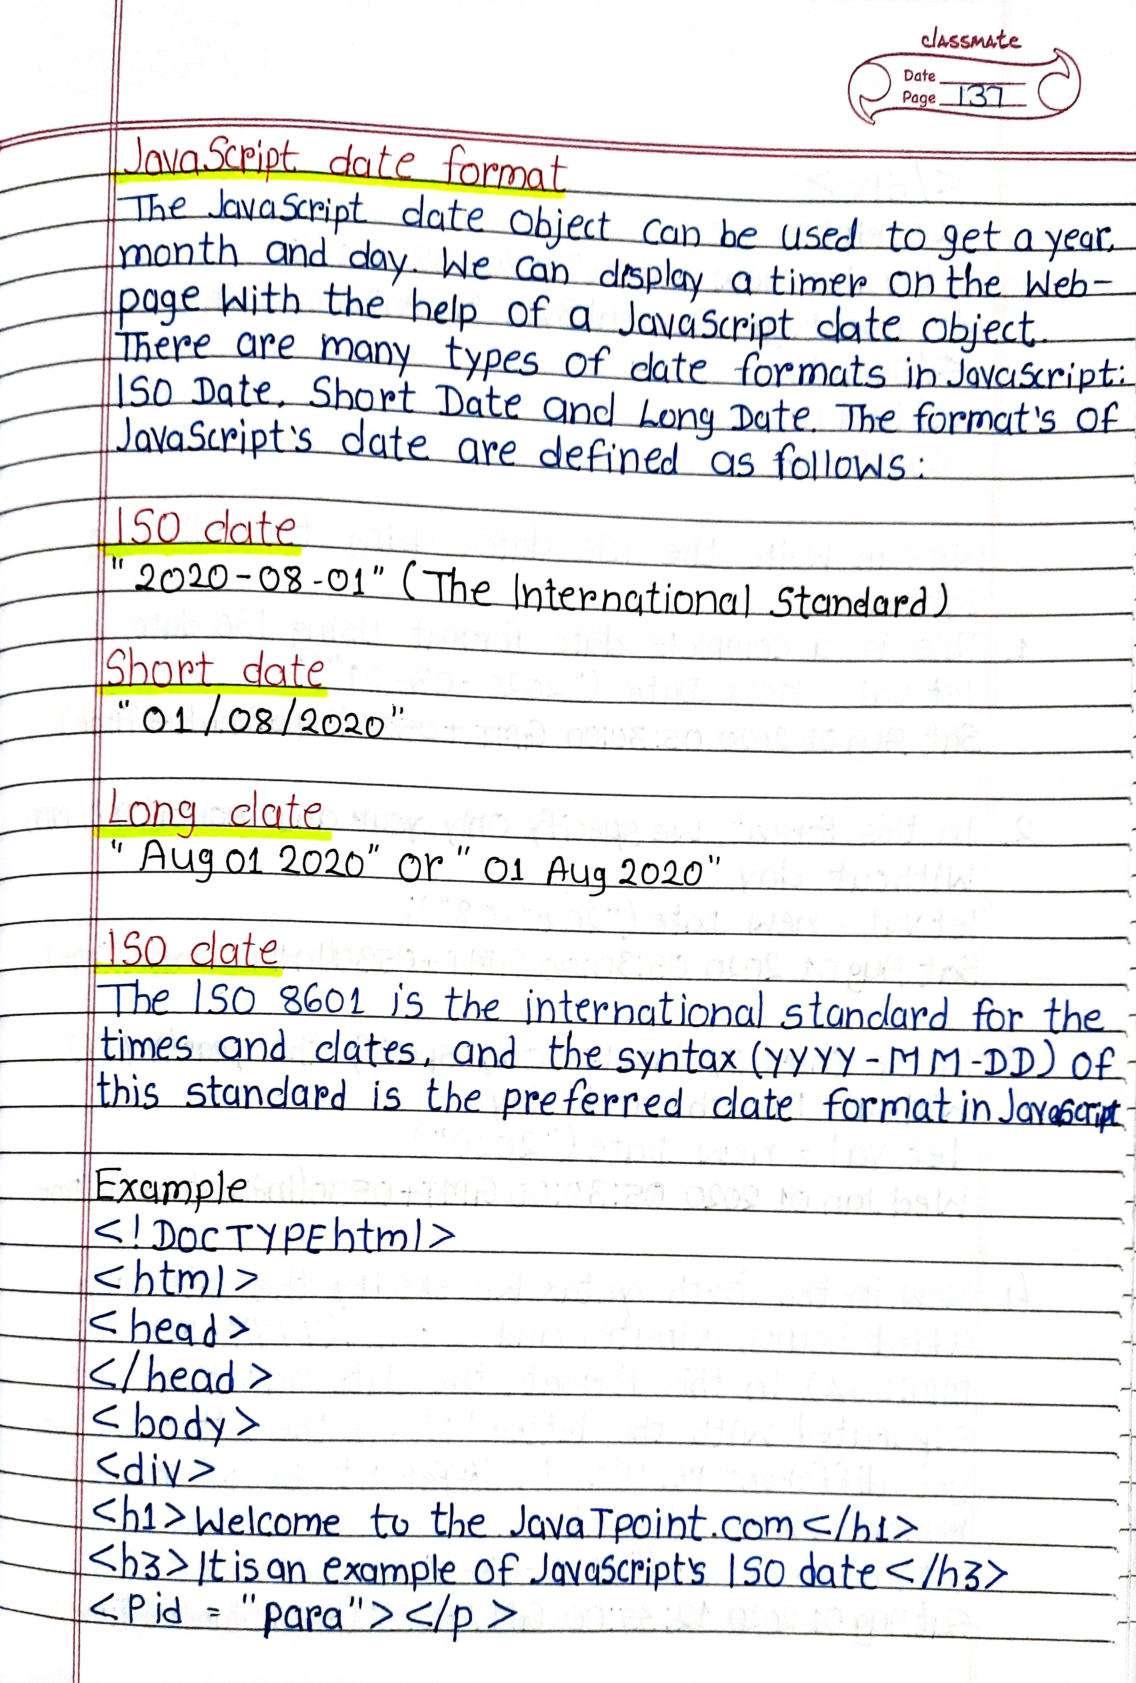 classmate
Date
Page 137
JavaScript date format
The JavaScript date object can be used to get a year,
month and day. We can display a timer on the Web-
page With the help of a JavaScript date object.
There are many types of date formats in Javascript:
ISO Date, Short Date and Long Date. The format's of
JavaScript's date are defined as follows:
ISO date
"2020-08-01" (The International Standard)
Short date
"01/08/2020"
Long date
"Aug 01 2020" or "01 Aug 2020"
ISO date
The ISO 8601 is the international standard for the
times and dates, and the syntax (YYYY-MM-DD) of
this standard is the preferred date format in JavaScript
Example
<!DOCTYPE html>
<html>
<head>
</head>
<body>
<div>
<h1>Welcome to the JavaTpoint.com</h1>
<h3>It is an example of JavaScript's ISO date</h3>
<p id = "para"></p>